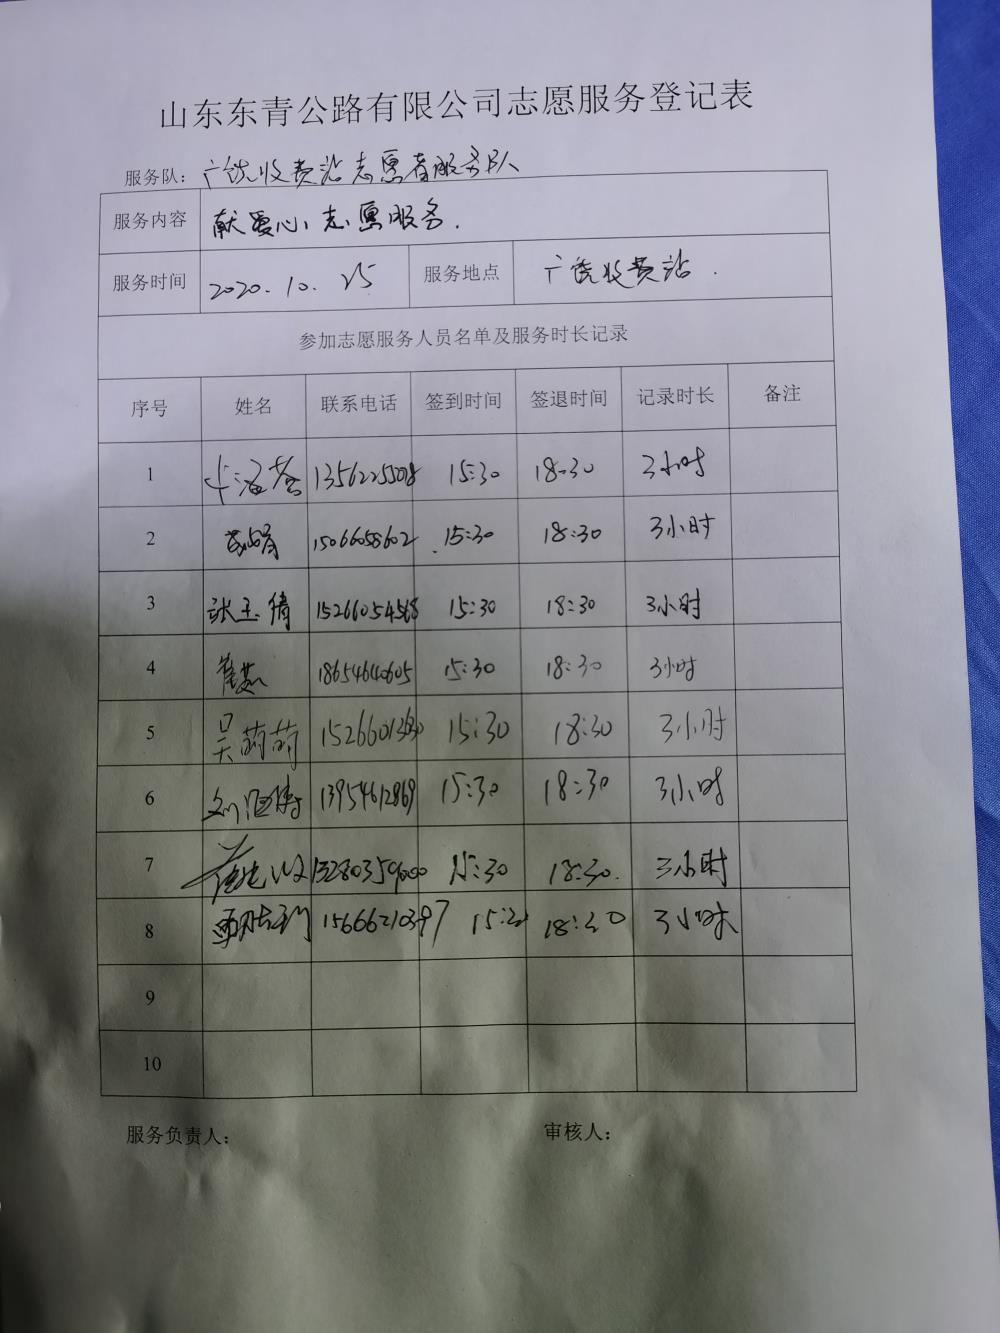 山东东青公路有限公司志愿服务登记表
服务队：广饶收费站志愿者服务队
服务内容 献爱心志愿服务.
服务时间 2020.10.25 服务地点 广饶收费站.
参加志愿服务人员名单及服务时长记录
序号 姓名 联系电话 签到时间 签退时间 记录时长 备注
1 15:30 18:30 3小时
2 15066058602 15:30 18:30 3小时
3 张玉倩 15266054568 15:30 18:30 3小时
4 18654640605 15:30 18:30 3小时
5 吴萌萌 15:30 18:30 3小时
6 13954612869 15:30 18:30 3小时
7 15:30 18:30. 3小时
8 15666210397 15:30 18:30 3小时
9
10
服务负责人： 审核人：